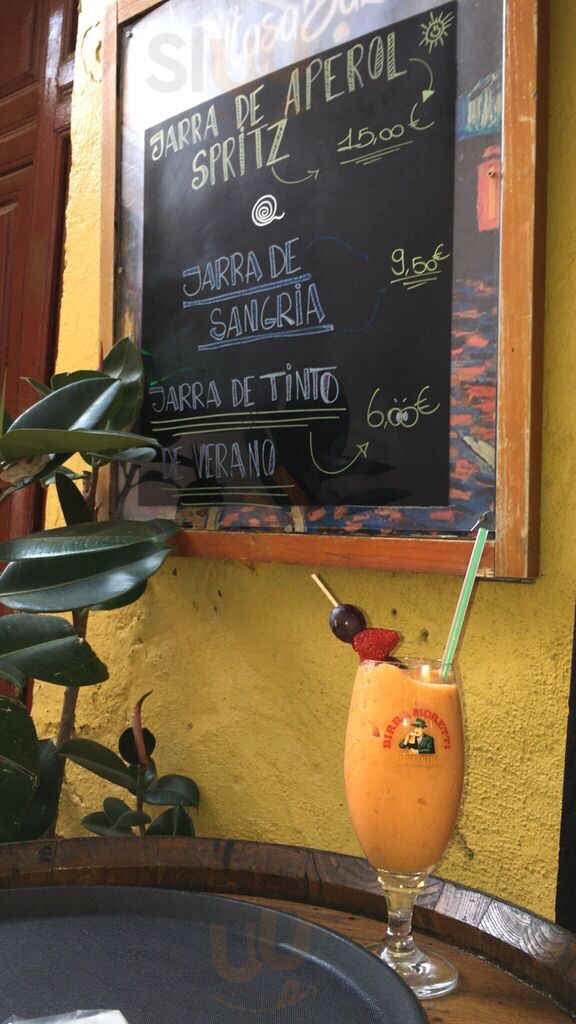 Casa
JARRA DE APEROL
SPRITZ
15,00€
JARRA DE
SANGRIA
9,50€
JARRA DE TINTO
DE VERANO
6,00€
BIRRA MORETTI